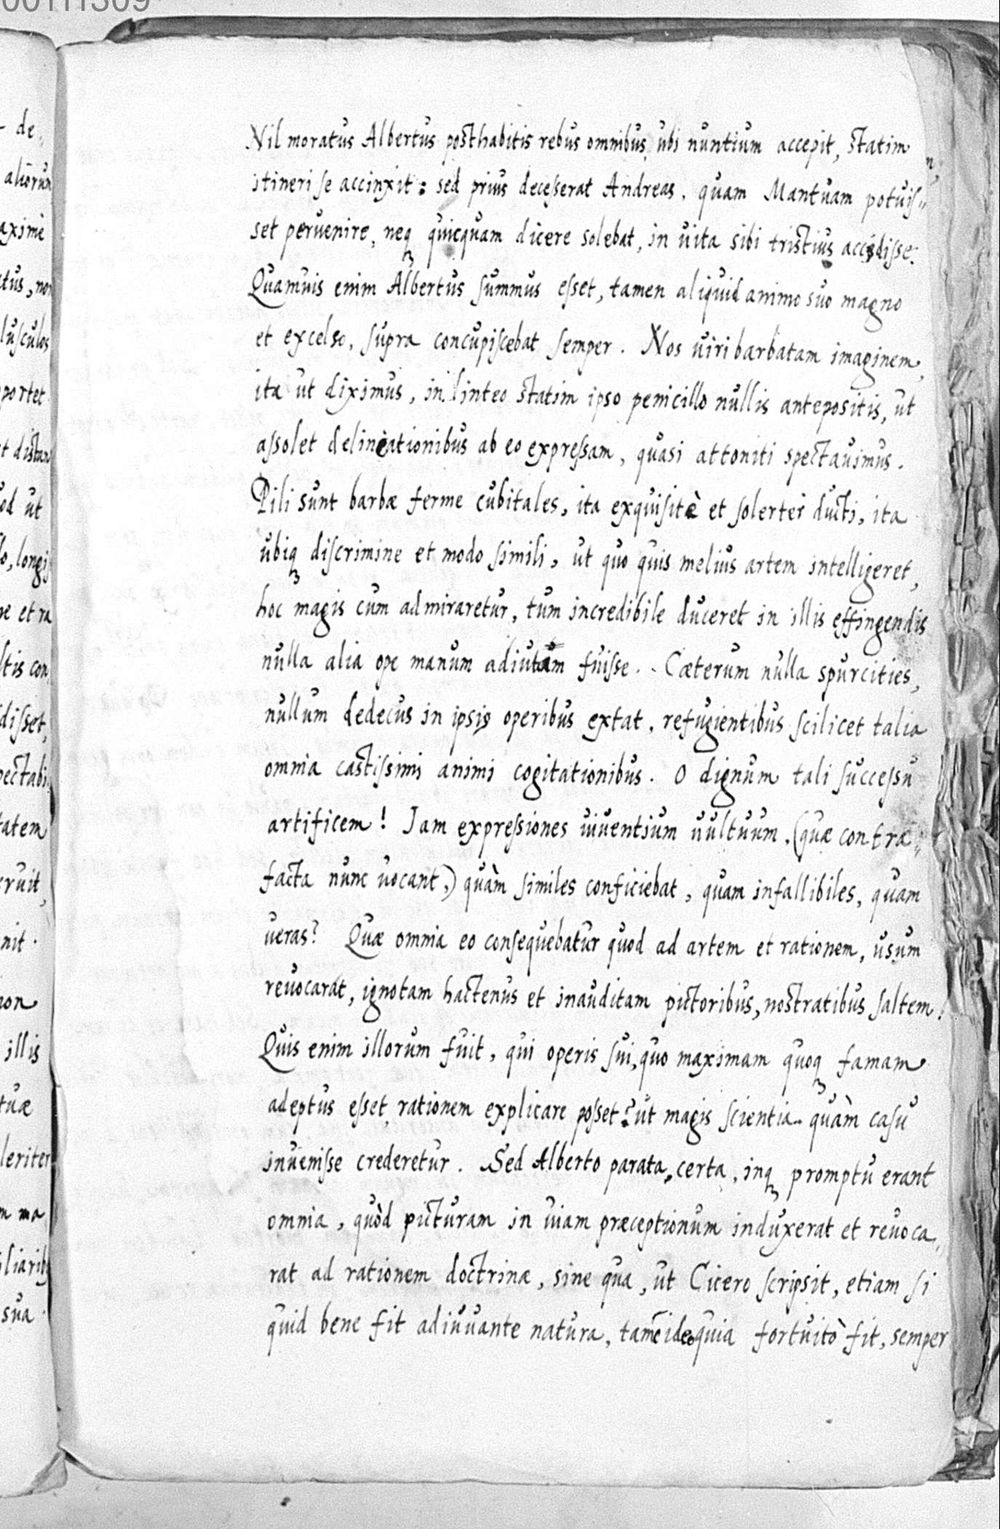 00111309
Nil moratus Albertus posthabitis rebus omnibus, ubi nuntium accepit, statim
itineri se accinxit: sed prius decesserat Andreas, quam Mantuam potuis„
set peruenire, neq quicquam dicere solebat, in uita sibi tristius accidisse.
Quamuis enim Albertus summus esset, tamen aliquid animo suo magno
et excelso, supra concupiscebat semper. Nos uiri barbatam imaginem,
ita ut diximus, in linteo statim ipso penicillo nullis antepositis, ut
assolet delineationibus ab eo expressam, quasi attoniti spectauimus.
Pili sunt barbæ ferme cubitales, ita exquisitè et solerter ducti, ita
ubiq discrimine et modo simili, ut quo quis melius artem intelligeret,
hoc magis cum admiraretur, tum incredibile duceret in illis effingendis
nulla alia ope manum adiutam fuisse. Cæterum nulla spurcities,
nullum dedecus in ipsis operibus extat, refugientibus scilicet talia
omnia castissimi animi cogitationibus. O dignum tali successu
artificem! Iam expressiones uiuentium uultuum, (quæ contra„
facta nunc uocant,) quàm similes conficiebat, quam infallibiles, quam
ueras? Quæ omnia eo consequebatur quod ad artem et rationem, usum
reuocarat, ignotam hactenus et inauditam pictoribus, nostratibus saltem.
Quis enim illorum fuit, qui operis sui, quo maximam quoq famam
adeptus esset rationem explicare posset? ut magis scientia quàm casu
inuenisse crederetur. Sed Alberto parata, certa, inq promptu erant
omnia, quòd picturam in uiam præceptionum induxerat et reuoca„
rat ad rationem doctrinæ, sine qua, ut Cicero scripsit, etiam si
quid bene fit adiuuante natura, tamē id quia fortuitò fit, semper
de„
aliorum
aximè
ctus, non
lusculos
portet
t distan
od ut
so, longi
ne et ra
ltis con
disset,
pectabi
tatem
eruit,
nit.
non
illis
tuæ
leriter
m ma
iliarib
sua.